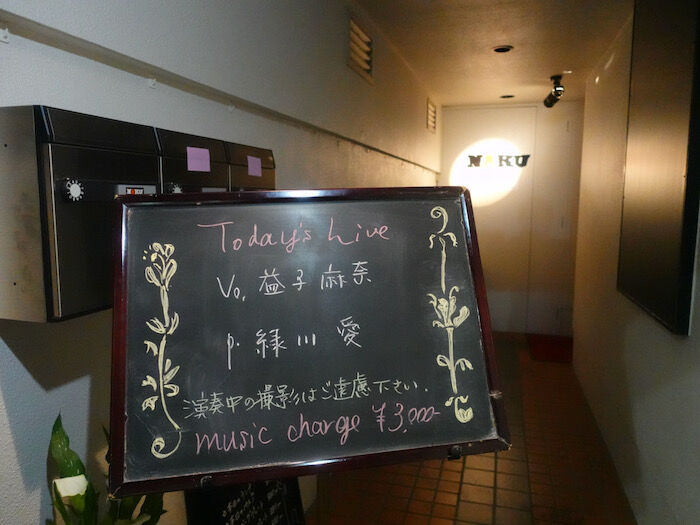 NAKU
Today's Live
Vo. 益子 麻奈
p. 緑川 愛
演奏中の撮影はご遠慮下さい.
music charge ¥3,000-